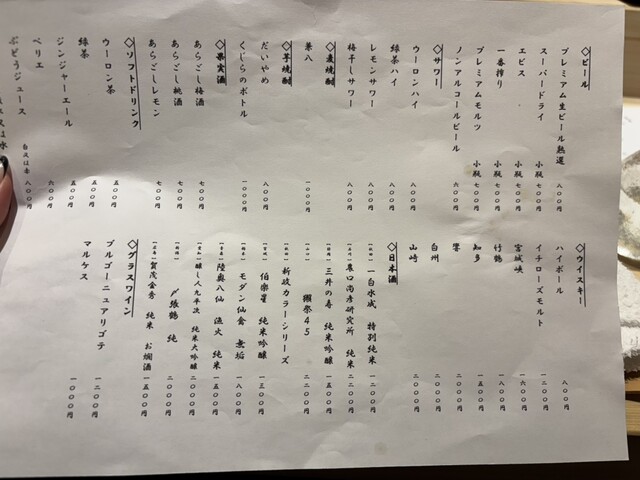 ◇ビール
プレミアム生ビール熟選 八〇〇円
スーパードライ 小瓶 七〇〇円
エビス 小瓶 七〇〇円
一番搾り 小瓶 七〇〇円
プレミアムモルツ 小瓶 七〇〇円
ノンアルコールビール 六〇〇円
◇サワー
ウーロンハイ 八〇〇円
緑茶ハイ 八〇〇円
レモンサワー 八〇〇円
梅干しサワー 八〇〇円
◇麦焼酎
兼八 一〇〇〇円
◇芋焼酎
だいやめ 八〇〇円
くじらのボトル 一〇〇〇円
◇果実酒
あらごし梅酒 七〇〇円
あらごし桃酒 七〇〇円
あらごしレモン 七〇〇円
◇ソフトドリンク
ウーロン茶 五〇〇円
緑茶 五〇〇円
ジンジャーエール 五〇〇円
ペリエ 六〇〇円
ぶどうジュース 白又は赤 八〇〇円
◇ウイスキー
ハイボール 八〇〇円
イチローズモルト 一二〇〇円
宮城峡 一六〇〇円
竹鶴 一八〇〇円
知多 一五〇〇円
響 二〇〇〇円
白州 二〇〇〇円
山崎 二〇〇〇円
◇日本酒
一白水成 特別純米 一二〇〇円
農口尚彦研究所 純米 二二〇〇円
三井の寿 純米吟醸 一五〇〇円
獺祭45 二二〇〇円
新政カラーシリーズ 二〇〇〇円
伯楽星 純米吟醸 一三〇〇円
モダン仙禽 無垢 一八〇〇円
陸奥八仙 漁火 純米 一五〇〇円
醸し人九平次 純米大吟醸 二〇〇〇円
〆張鶴 純 二〇〇〇円
賀茂金秀 純米 お燗酒 一五〇〇円
◇グラスワイン
ブルゴーニュアリゴテ 一二〇〇円
マルケス 一〇〇〇円